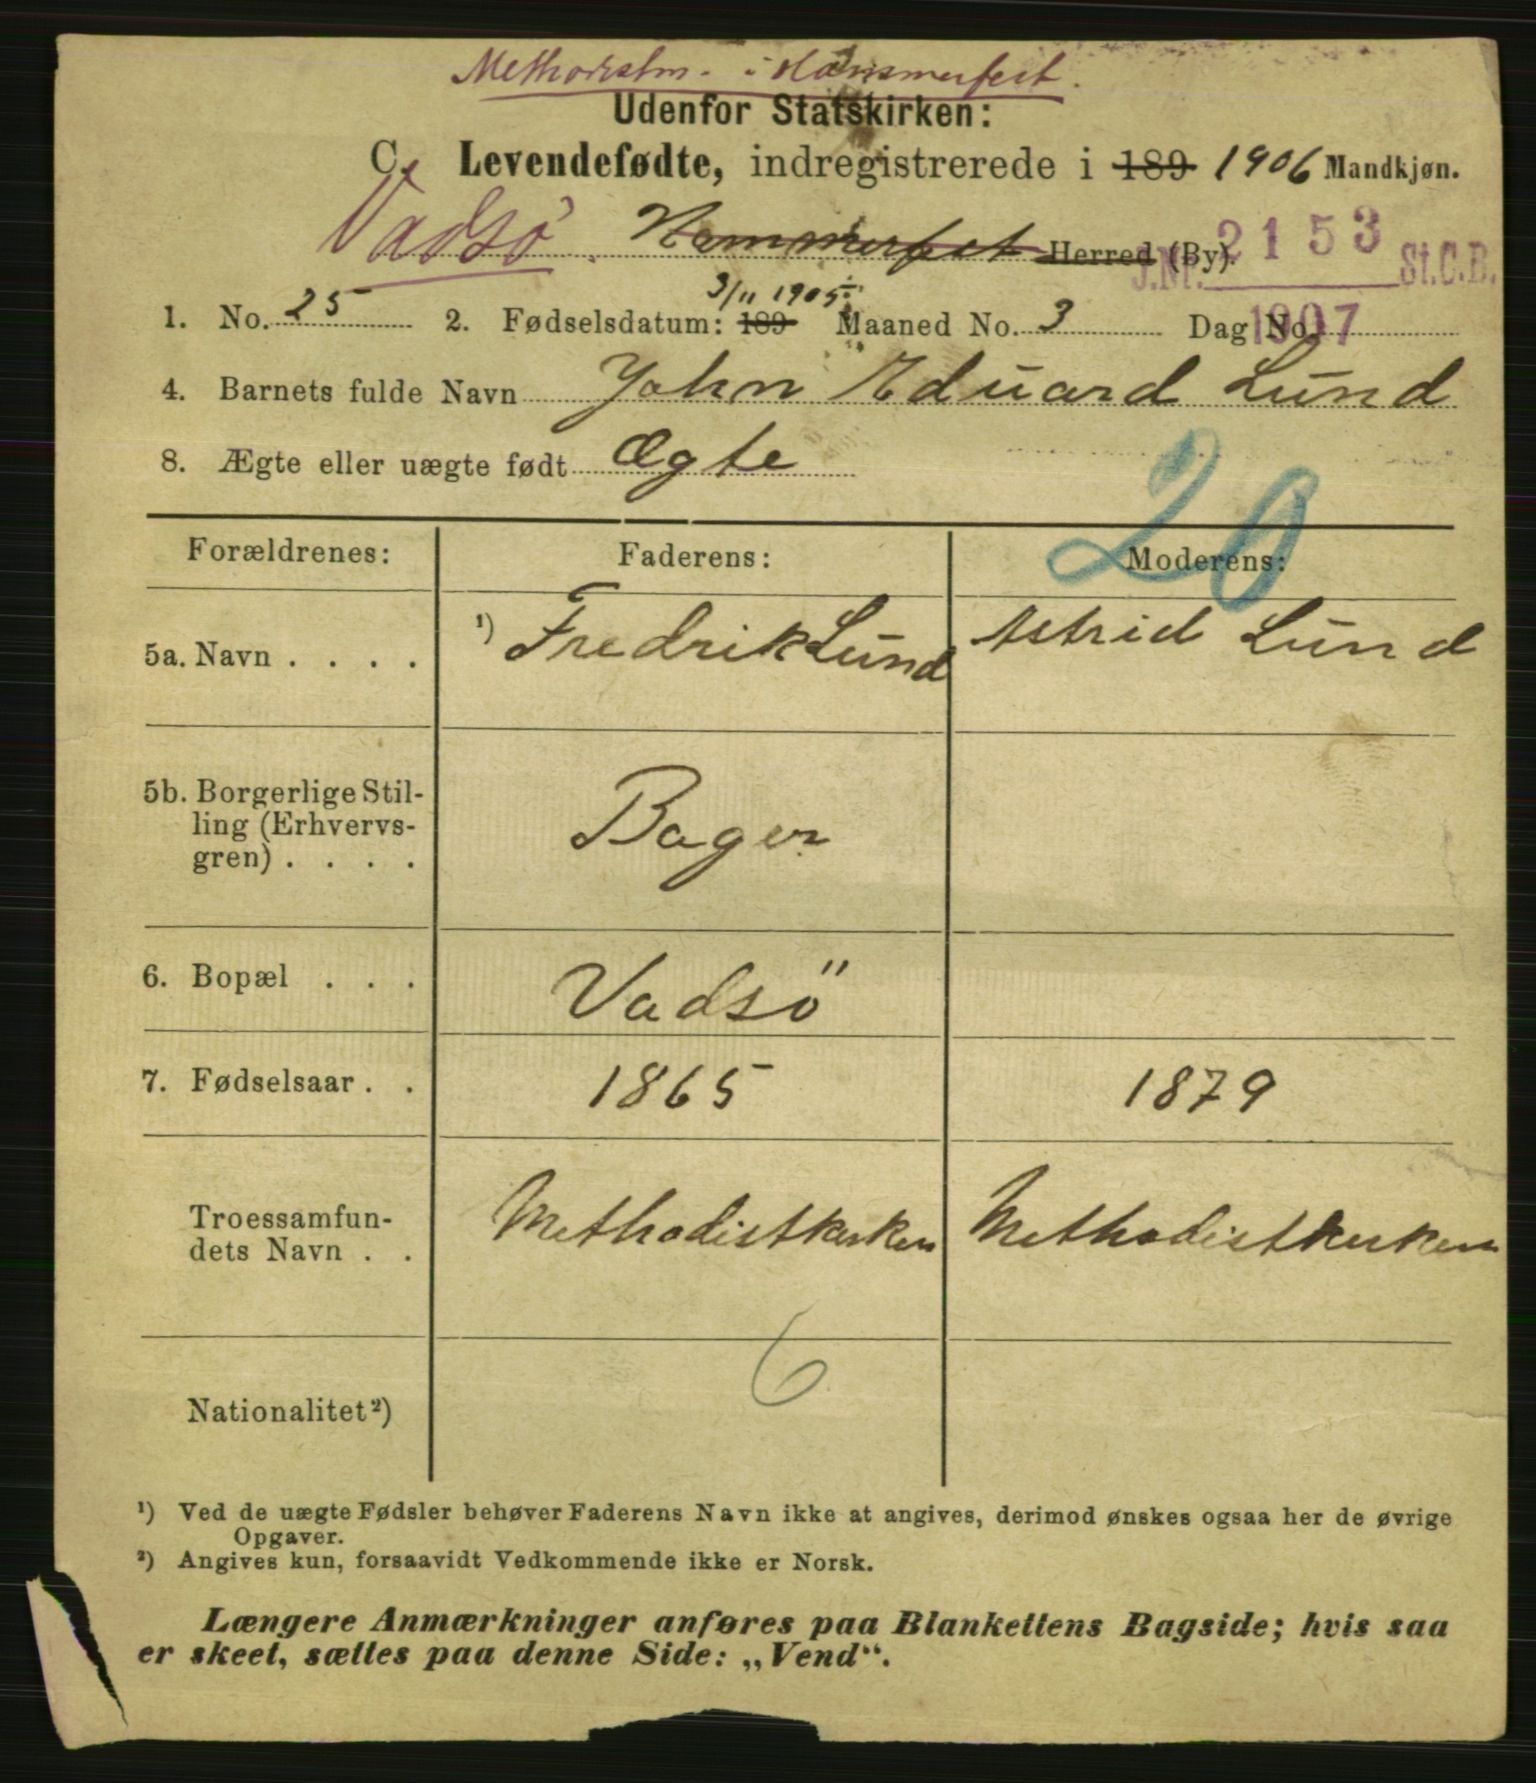 Methodistm. i Hammerfest.
Udenfor Statskirken:
C. Levendefødte, indregistrerede i 189 1906 Mandkjøn.
Vadsö. Hammerfest Herred (By).
J.Nr. 2153 St.C.B.
1907
3/11 1905
1. No. 25 2. Fødselsdatum: 189 Maaned No. 3 Dag No.
4. Barnets fulde Navn John Eduard Lund
8. Ægte eller uægte født Ægte
20
Forældrenes: Faderens: Moderens:
5a. Navn . . . . ¹) Fredrik Lund Astrid Lund
5b. Borgerlige Stil-
ling (Erhvervs-
gren) . . . . Bager
6. Bopæl . . . Vadsö
7. Fødselsaar . . 1865 1879
Troessamfun-
dets Navn . . Methodistkirken Methodistkirken
6
Nationalitet²)
¹) Ved de uægte Fødsler behøver Faderens Navn ikke at angives, derimod ønskes ogsaa her de øvrige
Opgaver.
²) Angives kun, forsaavidt Vedkommende ikke er Norsk.
Længere Anmærkninger anføres paa Blankettens Bagside; hvis saa
er skeet, sættes paa denne Side: „Vend“.